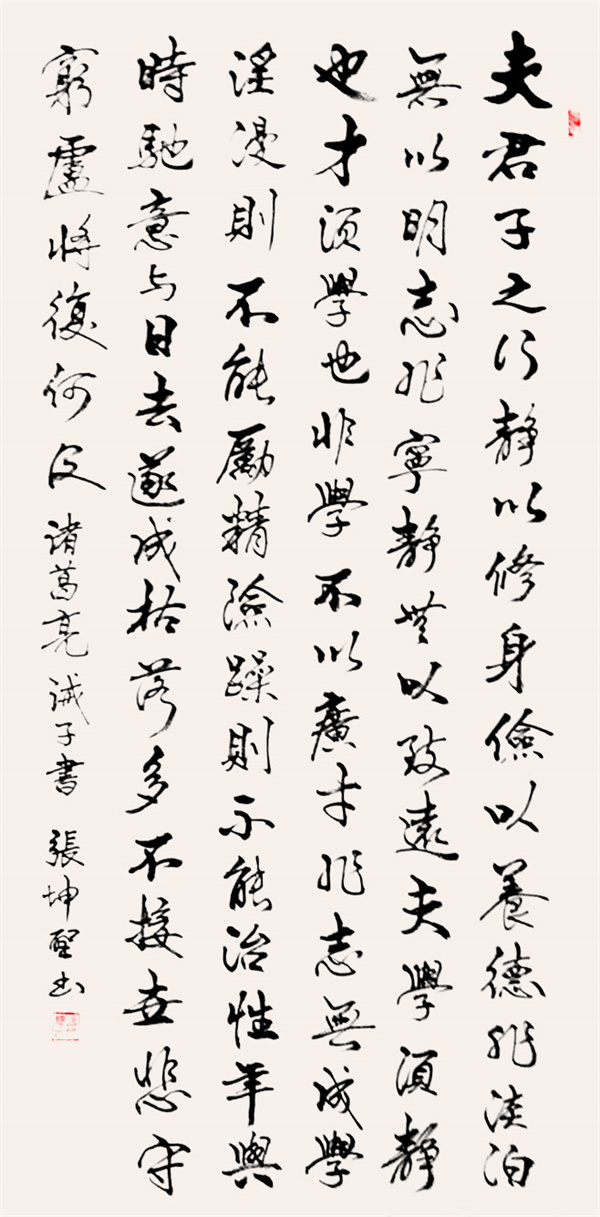 夫君子之行静以修身儉以養德非淡泊
無以明志非寧静無以致遠夫學須静
也才須學也非學不以廣才非志無成學
淫漫則不能勵精險躁則不能治性年與
時馳意与日去遂成枯落多不接世悲守
窮廬將復何及 诸葛亮诫子書 張坤书